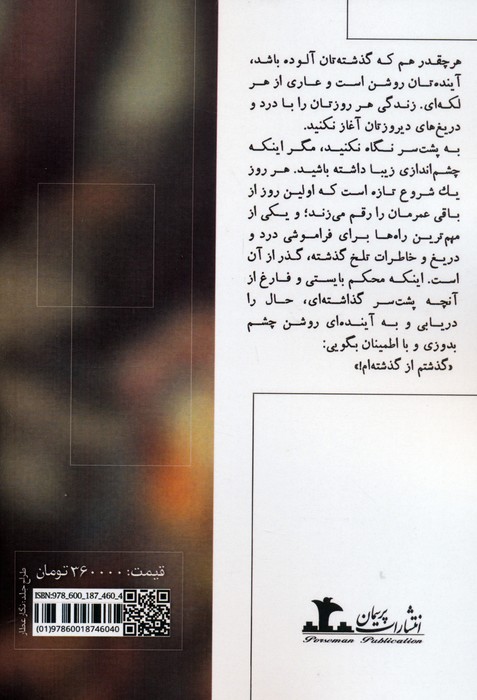 هرچقدر هم که گذشته‌تان آلوده باشد،
آینده‌تان روشن است و عاری از هر
لکه‌ای. زندگی هر روزتان را با درد و
دریغ‌های دیروزتان آغاز نکنید.
به پشت‌سر نگاه نکنید، مگر اینکه
چشم‌اندازی زیبا داشته باشید. هر روز
یك شروع تازه است که اولین روز از
باقی عمرمان را رقم می‌زند؛ و یکی از
مهم‌ترین راه‌ها برای فراموشی درد و
دریغ و خاطرات تلخ گذشته، گذر از آن
است. اینکه محکم بایستی و فارغ از
آنچه پشت‌سر گذاشته‌ای، حال را
دریابی و به آینده‌ای روشن چشم
بدوزی و با اطمینان بگویی:
«گذشتم از گذشته‌ام!»
قیمت: ۳۶۰۰۰۰ تومان
ISBN:978_600_187_460_4
(01)97860018746040
طراح جلد: نگار عطار
انتشارات پرسمان
Porseman Publication